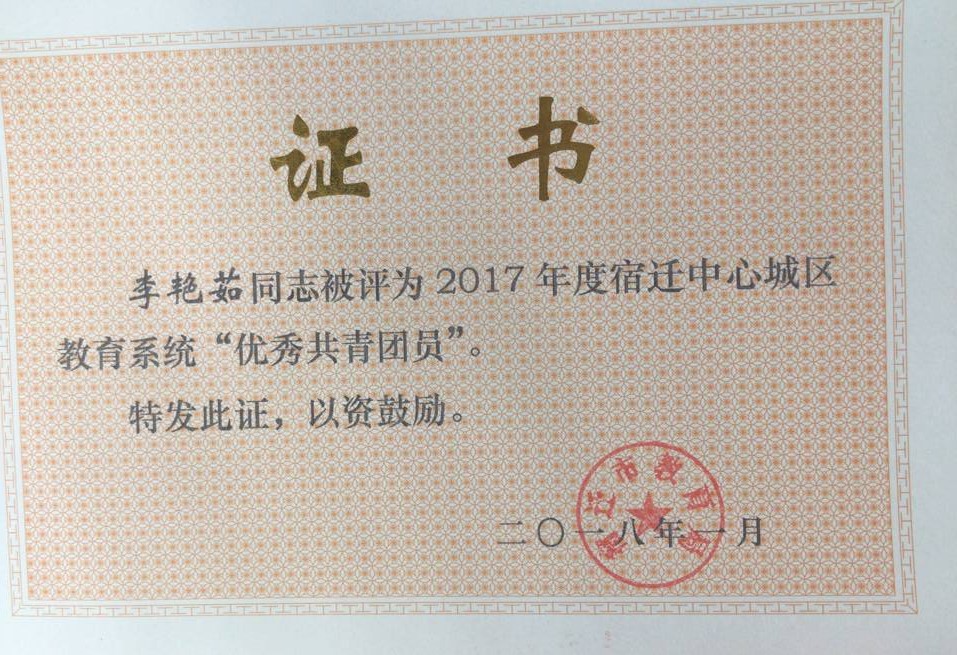 证书
李艳茹同志被评为2017年度宿迁中心城区
教育系统“优秀共青团员”。
特发此证，以资鼓励。
宿迁市教育局
二〇一八年一月